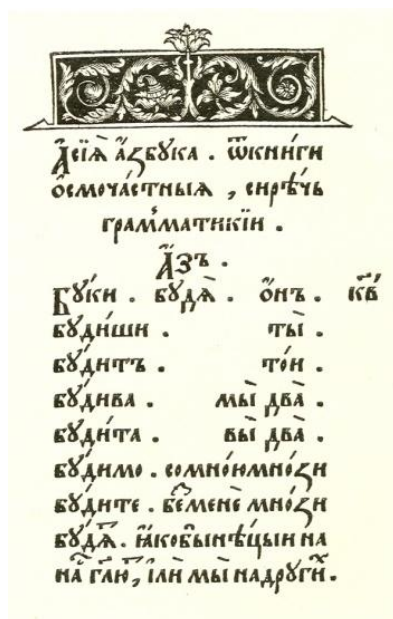 Асїѧ̀ а҆́збꙋка . ѿкни́ги
ѻ҆смоча́стныѧ , сирѣ́чь
грамма́тикїи .
А҆́зъ .
Бꙋ́ки . бꙋдѧ̀ . ѻ҆́нъ .
бꙋди́ши . ты̀ .
бꙋ́дитъ . то́и .
бꙋ́дива . мы̀ два̀ .
бꙋди́та . вы̀ два̀ .
бꙋ́димо . сомно́юмно́ѕи
бꙋ́дите . беⷥменѐ мно́ѕи
на гл҃ю , і҆лѝ мы̀ надрꙋги́⯯ .